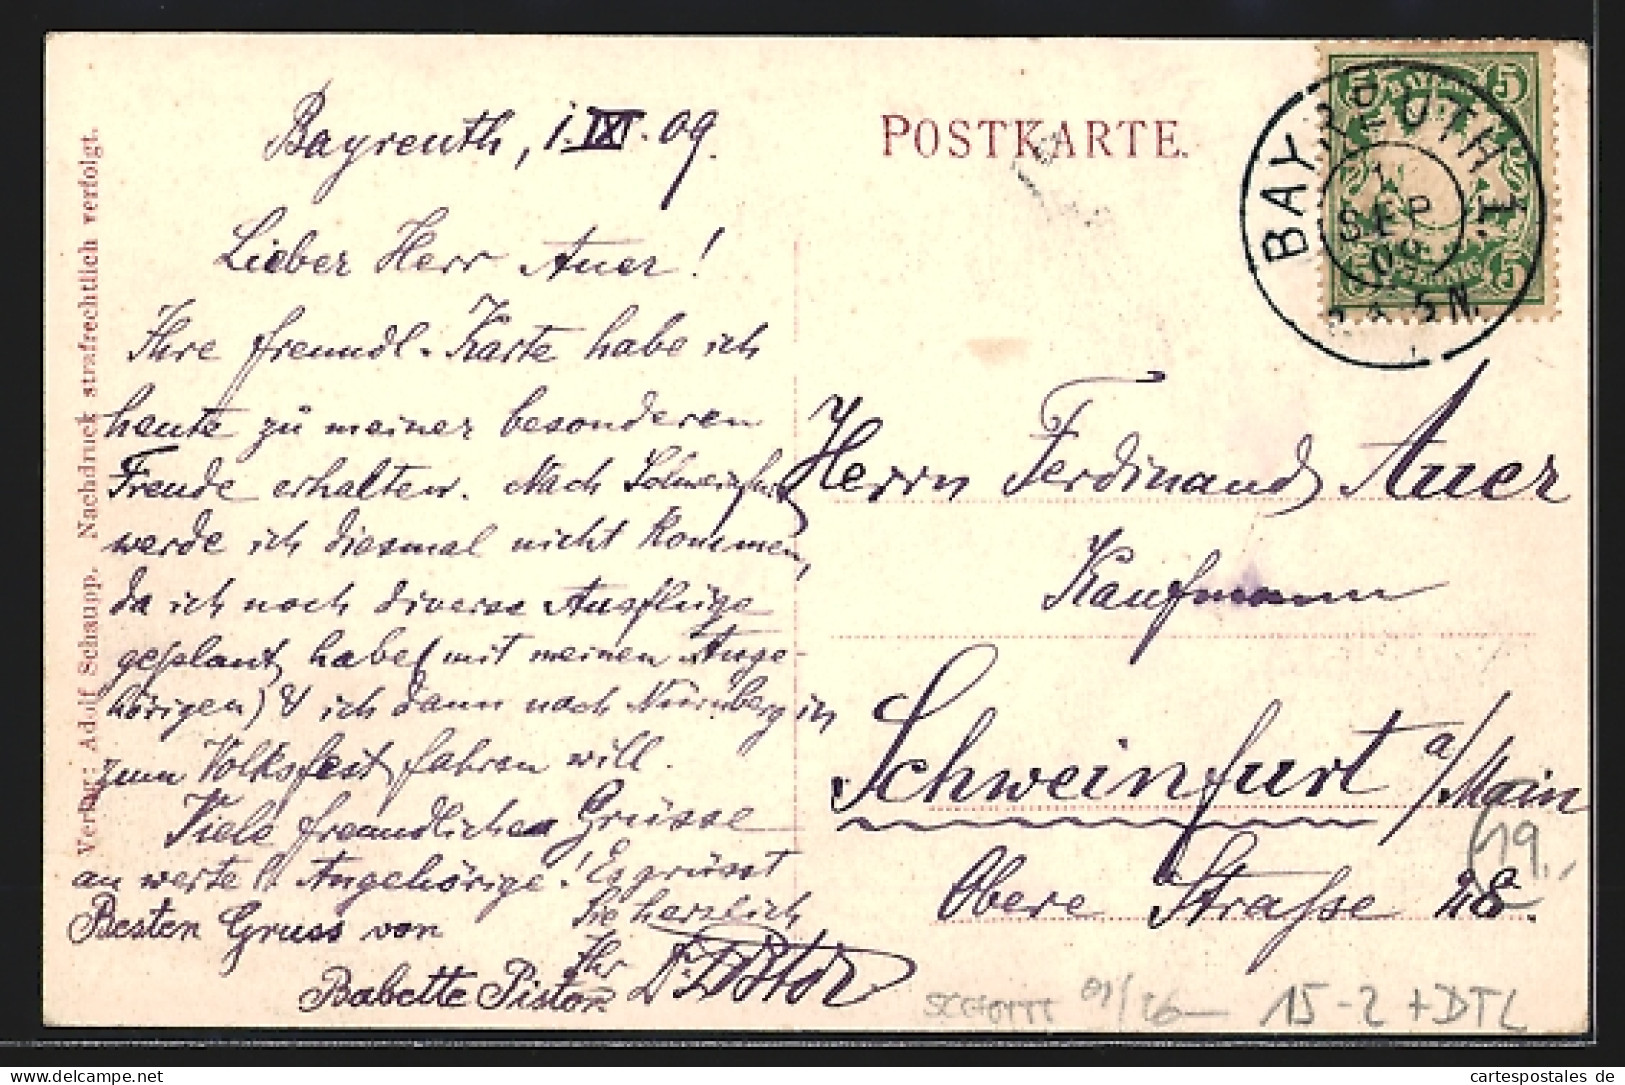 Verlag: Adolf Schaupp. Nachdruck strafrechtlich verfolgt.
Bayreuth, 1.IX.09.
Lieber Herr Auer!
Ihre freundl. Karte habe ich
heute zu meiner besonderen
Freude erhalten. Nach Schweinfurt
werde ich diesmal nicht kommen,
da ich noch diverse Ausflüge
geplant habe (mit meinen Ange-
hörigen) & ich dann nach Nürnberg
zum Volksfest fahren will.
Viele freundlichen Grüsse
an werte Angehörige! Es grüsst
Sie herzlich
Ihr
Besten Gruss von
Babette Pistor
POSTKARTE.
BAYERN
5 5
PFENNIG
5 5
BAYREUTH 1.
1
SEP
09
5 N.
Herrn Ferdinand Auer
Kaufmann
Schweinfurt a/Main
Obere Straße 28.
19.
15-2 + DTL
cartespostales de